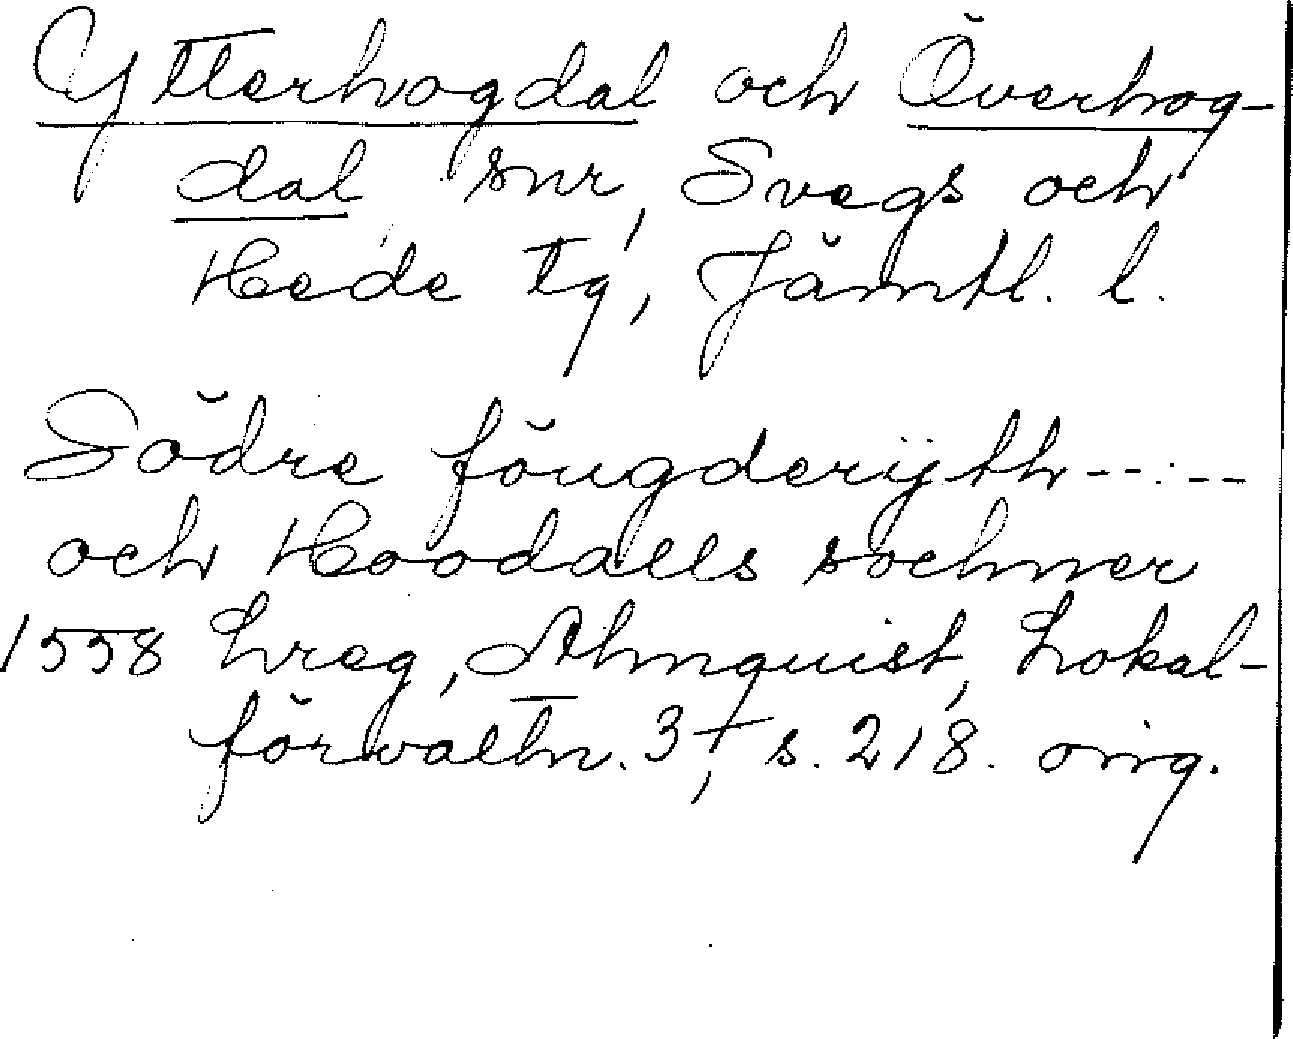 Ytterhogdal och Överhog-
dal snr, Svegs och
Hede tg, Jämtl. l.
Södre föugderijth -----
och Hoodalls sochner
1558 Lreg, Almquist, Lokal-
förvaltn. 3, s. 218. orig.